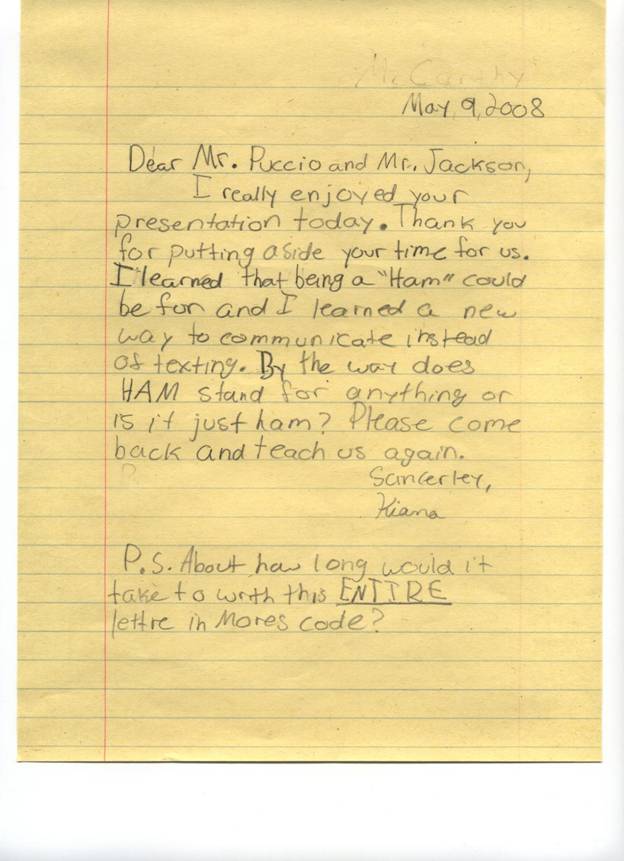 McCarthy
May, 9, 2008
Dear Mr. Puccio and Mr. Jackson,
I really enjoyed your
presentation today. Thank you
for putting aside your time for us.
I learned that being a "Ham" could
be fun and I learned a new
way to communicate instead
of texting. By the way does
HAM stand for anything or
is it just ham? Please come
back and teach us again.
Sancerley,
Kiana
P.S. About how long would it
take to writh this ENTIRE
lettre in Mores code?